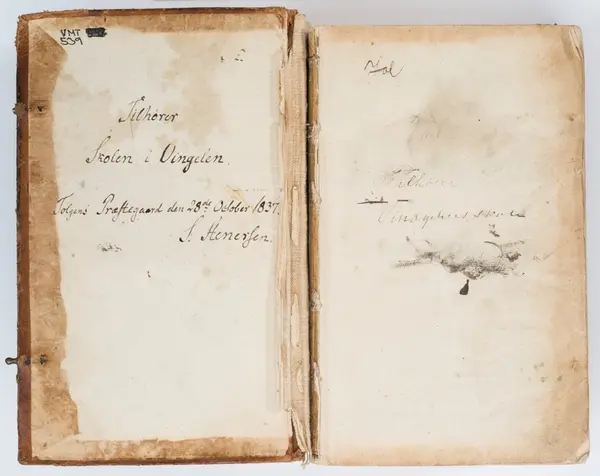 VMT
539
Tilhører
Skolen i Vingelen.
Tolgens Præstegaard den 28de October 1837.
S. Henersen.
Tilhører